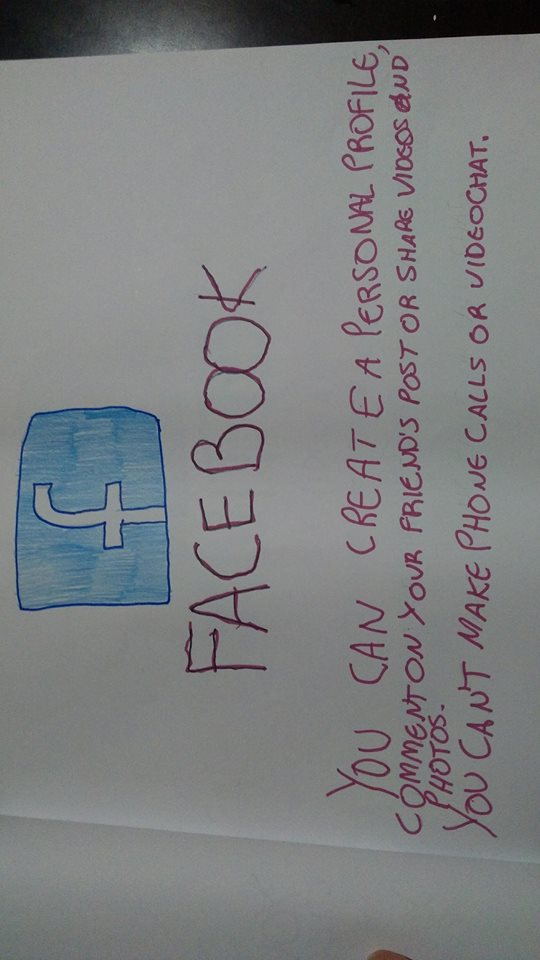 f
FACEBOOK
YOU CAN CREATE A PERSONAL PROFILE,
COMMENT ON YOUR FRIEND'S POST OR SHARE VIDEOS AND
PHOTOS.
YOU CAN'T MAKE PHONE CALLS OR VIDEOCHAT.